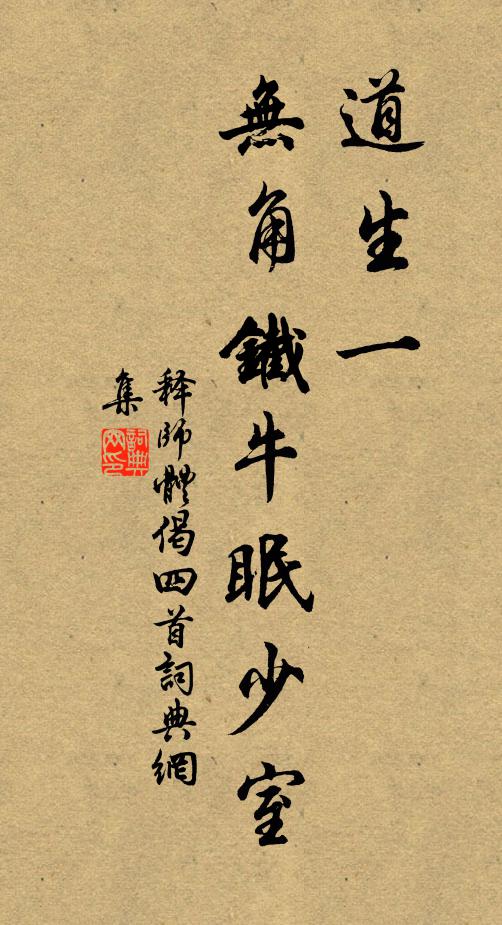 道生一
無角鐵牛眠少室
释師體偈四首詞典網
集
詞典
网印